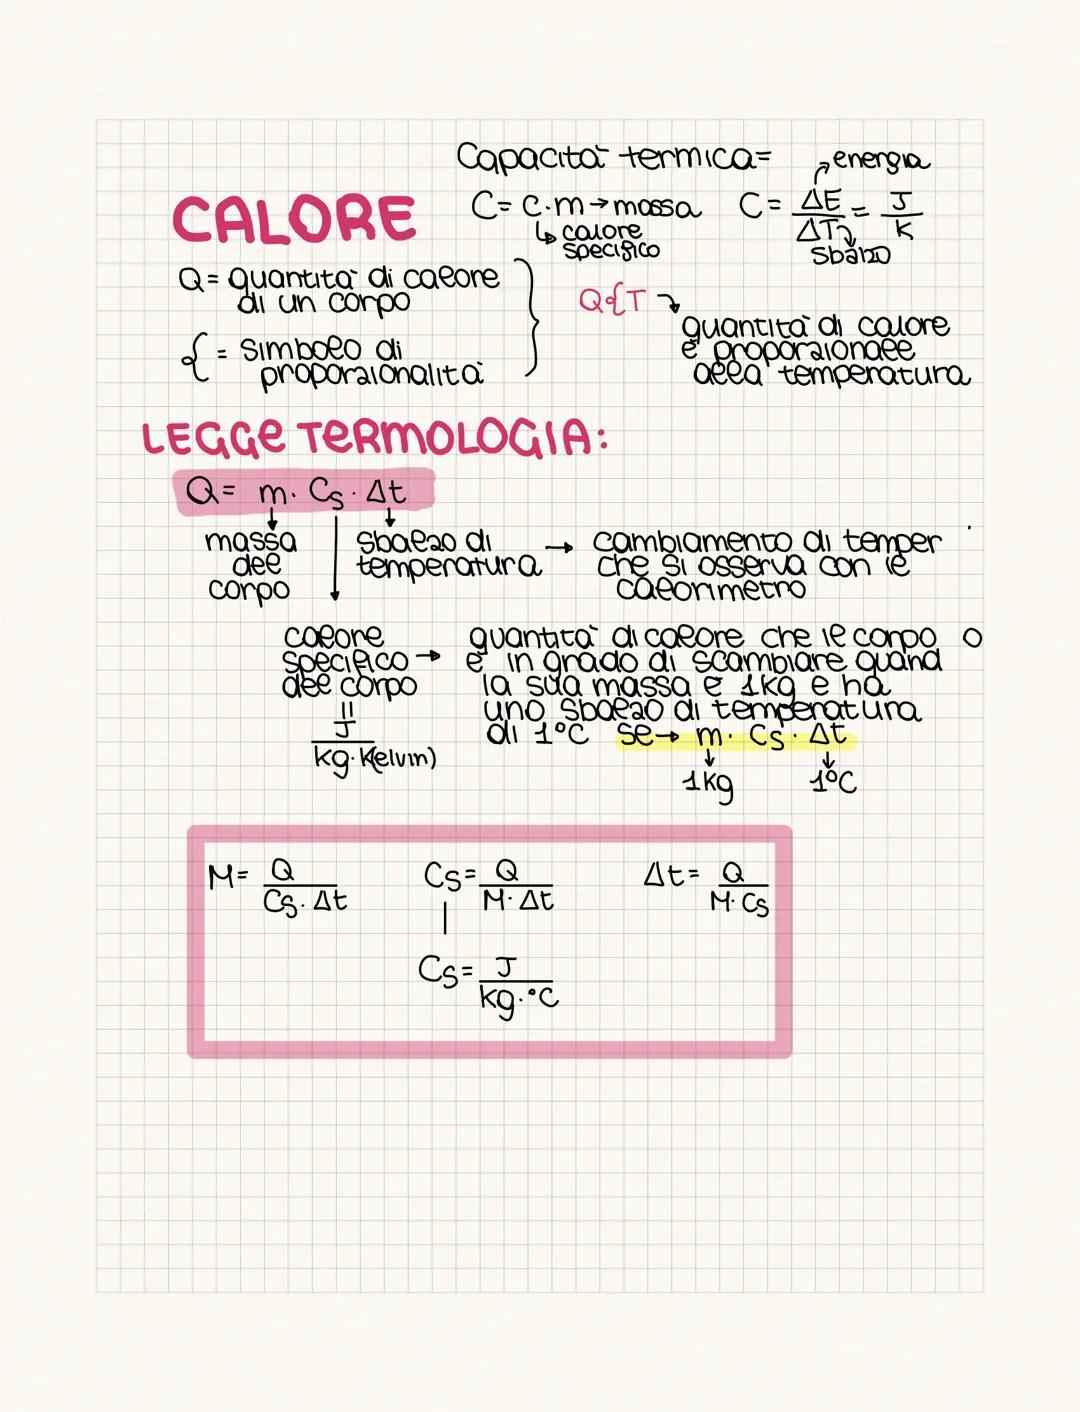 Capacità termica=
energia
CALORE
C= c·m→massa
C= ΔE/ΔT = J/K
calore
specifico
sbalzo
Q= quantità di calore
di un corpo
= simbolo di
proporzionalità
Q T
quantità di calore
è proporzionale
alla temperatura
LEGGE TERMOLOGIA:
Q= m· Cs · Δt
massa
del
corpo
sbalzo di
temperatura
→ cambiamento di temper
che si osserva con il
calorimetro
calore
specifico →
del corpo
=
J/kg·K(elvin)
quantità di calore che il corpo o
è in grado di scambiare quand
la sua massa è 1kg e ha
uno sbalzo di temperatura
di 1°C se→ m· Cs· Δt
1kg
1°C
M= Q/Cs·Δt
Cs= Q/M·Δt
Δt= Q/M·Cs
Cs= J/kg·°C